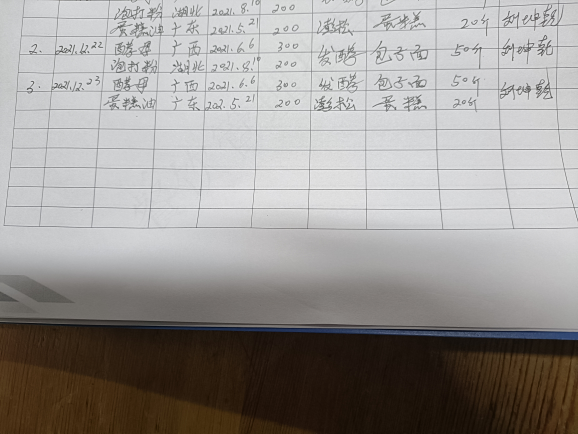 泡打粉 湖北 2021.8.10 200
蛋糕油 广东 2021.5.21 200 澎松 蛋糕 20斤 刘坤乾
2. 2021.12.22 酵母 广西 2021.6.6 300 发酵 包子面 50斤 刘坤乾
泡打粉 湖北 2021.8.10 200
3. 2021.12.23 酵母 广西 2021.6.6 300 发酵 包子面 50斤 刘坤乾
蛋糕油 广东 202.5.21 200 澎松 蛋糕 20斤